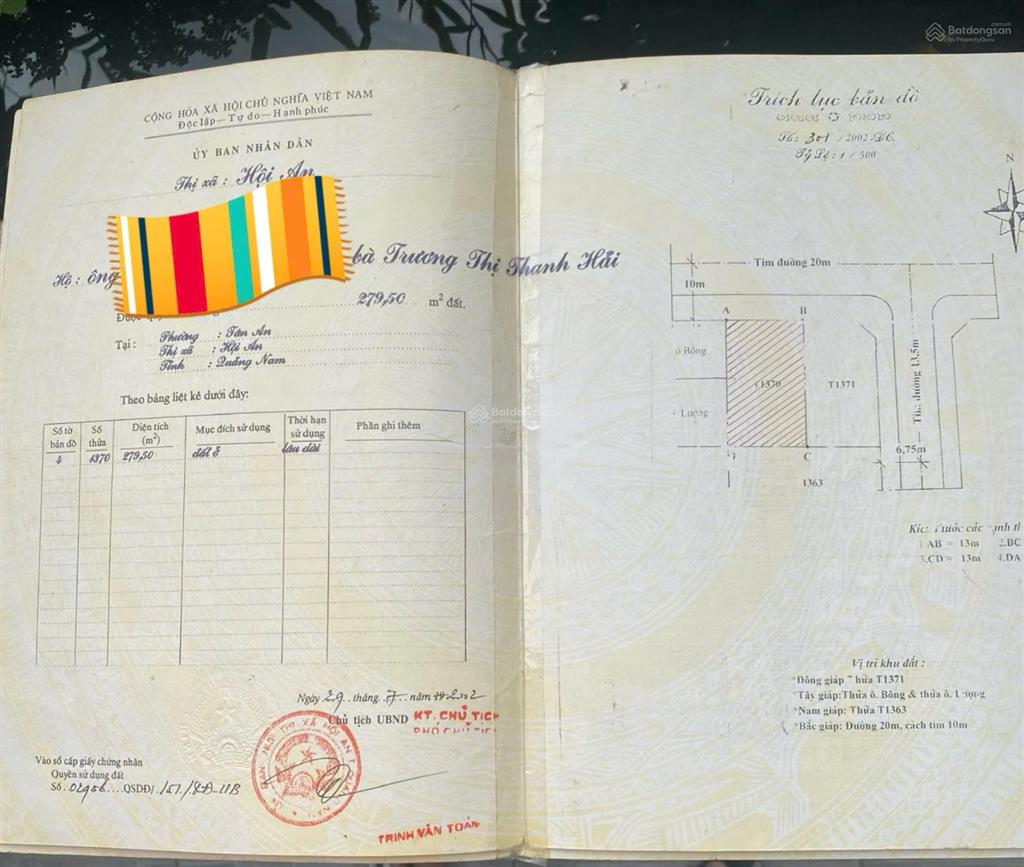 Batdongsan.com.vn
by PropertyGuru
CỘNG HÒA XÃ HỘI CHỦ NGHĨA VIỆT NAM
Độc lập — Tự do — Hạnh phúc
ỦY BAN NHÂN DÂN
Thị xã : Hội An
Hộ: ông
bà Trương Thị Thanh Hải
279,50 m² đất.
Tại : Phường : Tân An
Thị xã : Hội An
Tỉnh : Quảng Nam
Theo bảng liệt kê dưới đây:
Số tờ bản đồ Số thửa Diện tích (m²) Mục đích sử dụng Thời hạn sử dụng Phần ghi thêm
4 1370 279,50 đất ở lâu dài
Batdongsan
by PropertyGuru
Ngày 29 tháng 7 năm 2002
Chủ tịch UBND KT. CHỦ TỊCH
PHÓ CHỦ TỊCH
Vào sổ cấp giấy chứng nhận
Quyền sử dụng đất
Số QSDĐ/
TRỊNH VĂN TOÀN
Trích lục bản đồ
Số: 301 /2002-ĐC
Tỷ Lệ : 1 / 500
N
Tim đường 20m
10m
A B
ô Bông
T1370
T1371
đường 13,5m
Lượng
C
6,75m
1363
1.AB = 13m 2.BC
3.CD = 13m 4.DA
Vị trí khu đất :
*Đông giáp Thửa T1371
*Tây giáp: Thửa ô. Bông & thửa ô. Lượng
*Nam giáp: Thửa T1363
*Bắc giáp: Đường 20m, cách tim 10m